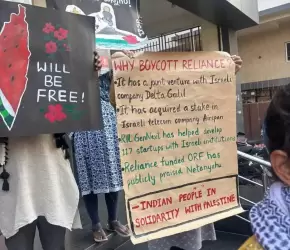 WILL
BE
FREE!
WHY BOYCOTT RELIANCE?
It has a joint venture with Israeli
company Delta Galil
It has acquired a stake in
Israeli telecom company Airspan
GenNext has helped develop
117 startups with Israeli institutions
Reliance funded ORF has
publicly praised Netanyahu
-INDIAN PEOPLE IN
SOLIDARITY WITH PALESTINE